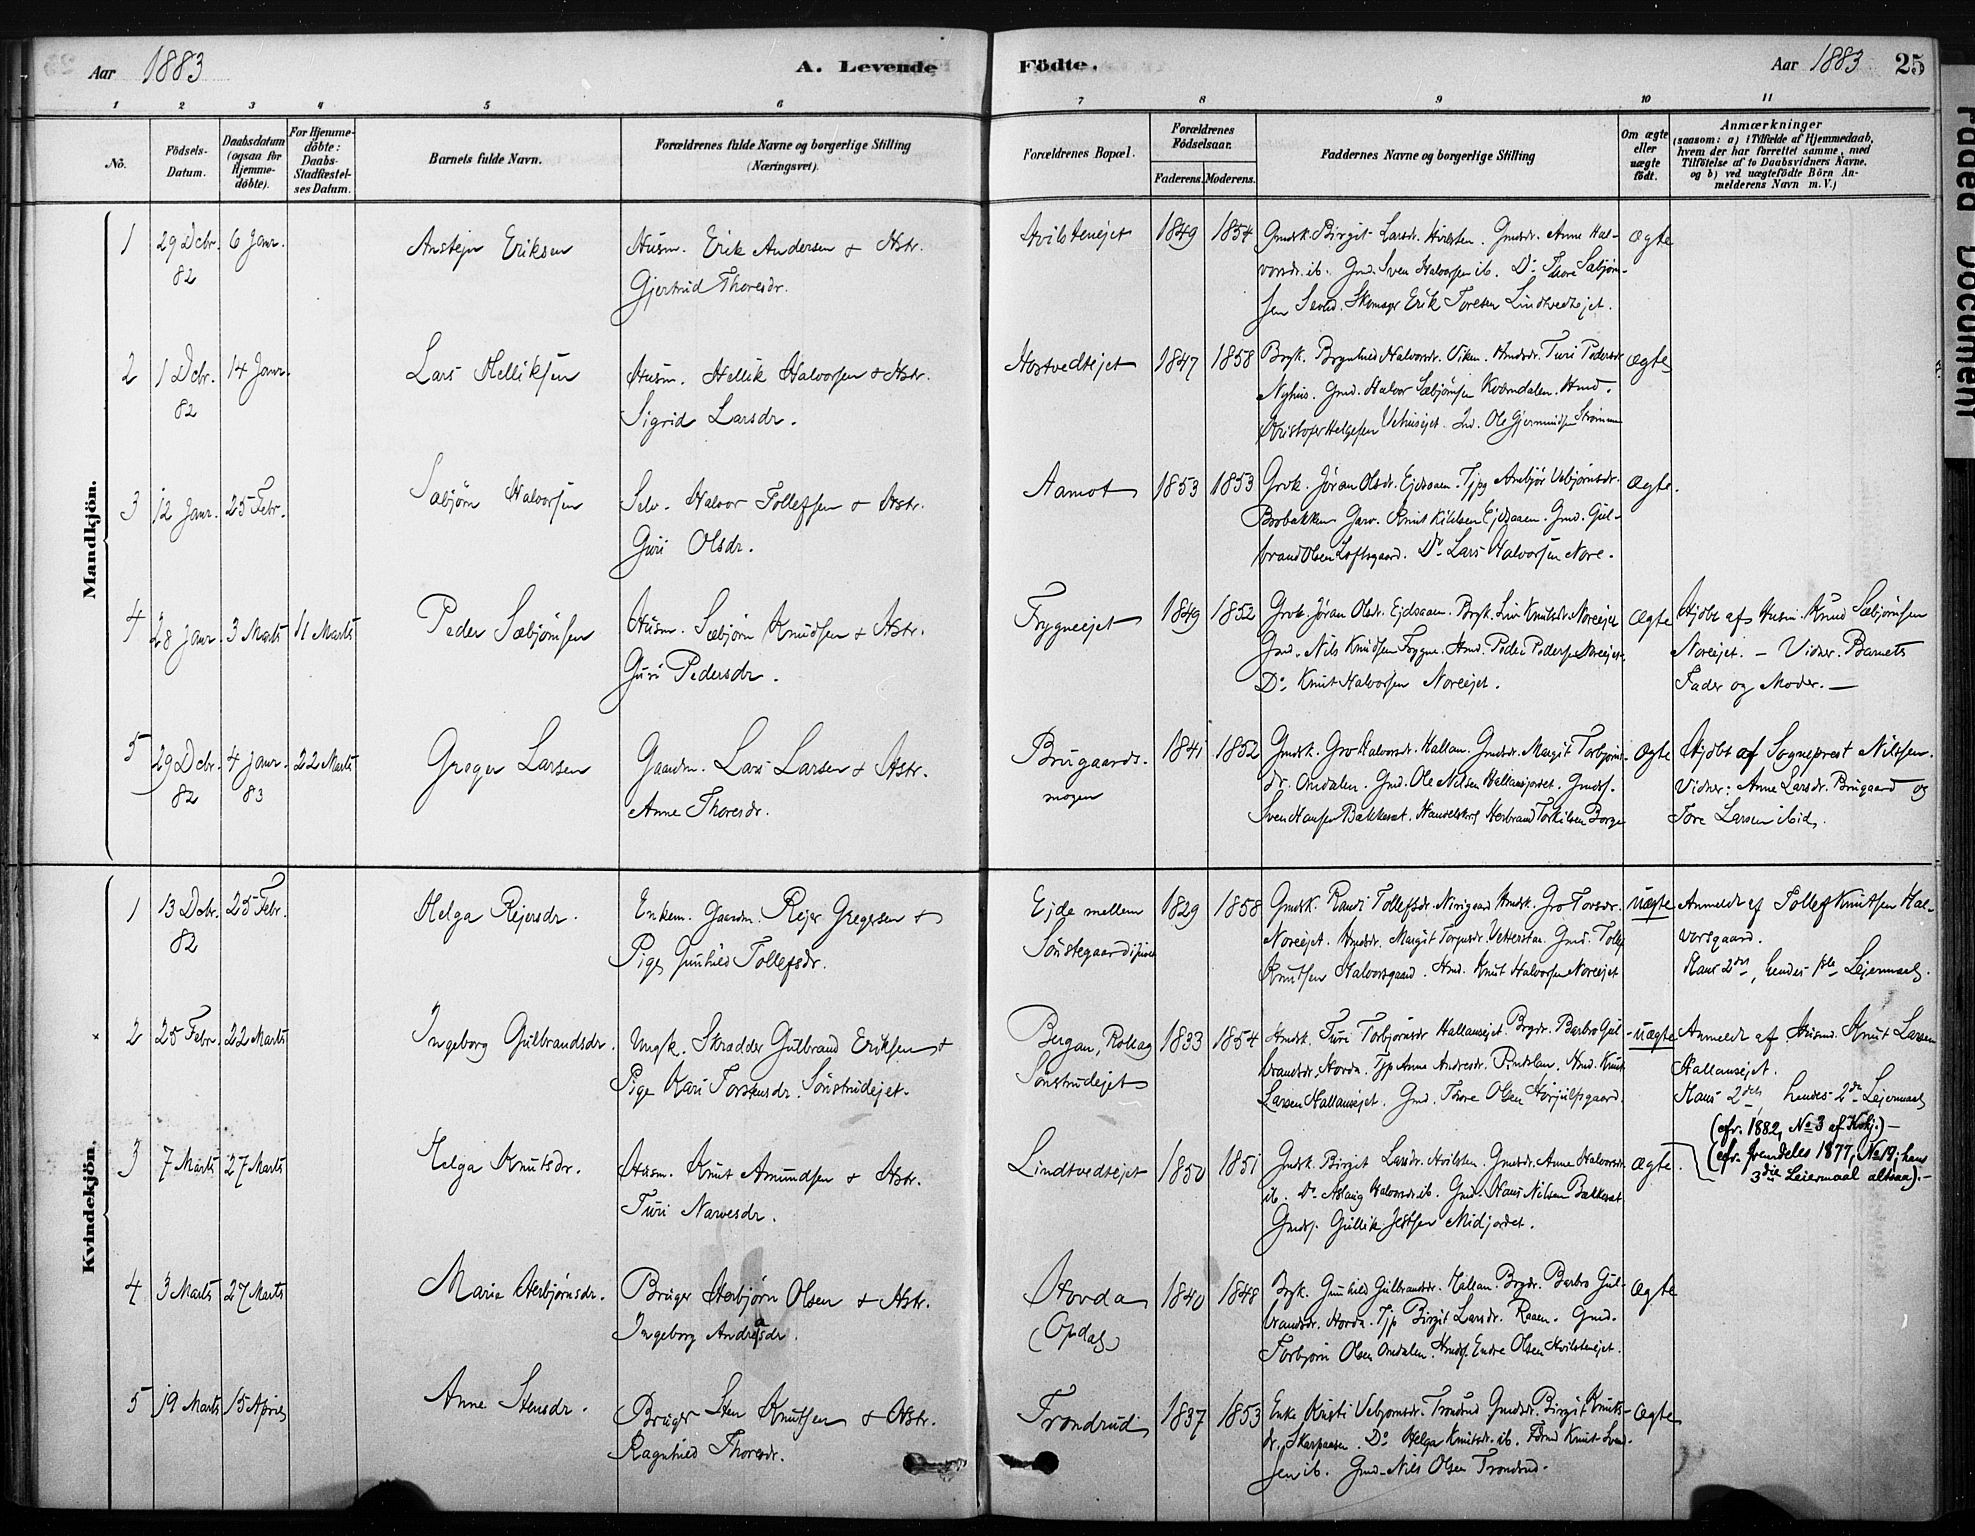 Aar 1883
A. Levende
Födte.
Aar 1883
25
1 2 3 4 5 6 7 8 9 10 11
No.
Födsels-
Datum.
Daabsdatum
(ogsaa for
Hjemme-
döbte).
For Hjemme-
döbte:
Daabs-
Stadfæstel-
ses Datum.
Barnets fulde Navn.
Forældrenes fulde Navne og borgerlige Stilling
(Næringsvei).
Forældrenes Bopæl.
Forældrenes
Födselsaar.
Faderens. Moderens.
Faddernes Navne og borgerlige Stilling
Om ægte
eller
uægte
födt.
Anmærkninger
(saasom: a) i Tilfælde af Hjemmedaab,
hvem der har forrettet samme, med
Tilföielse af to Daabsvidners Navne,
og b) ved uægtefödte Börn An-
melderens Navn m.V.)
Mandkjön.
1 29 Dcbr. 6 Janr.
82
Anstejn Eriksen
Husm. Erik Andersen & Hstr.
Gjertrud Thoresdr.
Hvilstenejet 1849 1854
Gmdsk. Birgit Larsdr. Hvilsten. Gmdsdr. Anne Hal-
vorsdr. ib. Gmd. Sven Halvorsen ib. Do Thore Sæbjørn-
sen. Skomagr Erik Toresen Lindtvedtejet.
Ægte
2 1 Dcbr. 14 Janr.
82
Lars Helliksen
Husm. Hellik Halvorsen & Hstr.
Sigrid Larsdr.
1847 1858
Brgk. Brynhild Halvorsdr. Viken. Hmdsdr. Turi Pedersdr
Nyhus. Gmd. Halvor Sæbjørnsen Kværndalen. Hmd.
Kristofer Helgesen Vehusejet. Ole Gjermundsen
Ægte
3 12 Janr. 25 Febr.
Sæbjørn Halvorsen
Selv. Halvor Tollefsen & Hstr.
Guri Olsdr.
Aamot 1853 1853
Grvk. Jøran Olsdr. Ejdsaaen. Tjpg Ambjør Vebjørnsdr.
Brobakken. Garv. Knut Ejdsaaen. Gmd. Gul-
brand Olsen Loftsgaard. Do Lars Halvorsen Nore.
Ægte.
4 28 Janr. 3 Marts 11 Marts
Peder Sæbjørnsen
Husm. Sæbjørn Knudsen & Hstr.
Guri Pedersdr.
Frygneejet 1849 1852
Grvk. Jøran Olsdr. Ejdsaaen. Brgk. Liv Knutsdr. Noreejet
Gmd. Nils Knudsen Frygne. Hmd. Peder Pedersen Noreejet.
Do Knut Halvorsen Noreejet.
Ægte
Hjdbt af Husm. Knud Sæbjørnsen
Noreejet. — Vidner. Barnets
Fader og Moder. —
5 29 Dcbr. 4 Janr. 22 Marts
82 83
Greger Larsen
Gaardm. Lars Larsen & Hstr.
Anne Thoresdr.
Brugaards-
mogen
1841 1852
Gmdsk. Gro Halvorsdr. Hallan. Gmdsdr. Margit Torbjørns-
dr. Omdalen. Gmd. Ole Nilsen. Gmdss.
Sven Hansen Bakkerat. Handelskrl Herbrand Torkilsen Borge
Ægte
Hjdbt af Sogneprest Nilssen.
Vidner: Anne Larsdr. Brugaard og
Tore Larsen ibid.
Kvindekjön.
1 13 Dcbr. 25 Febr.
82
Helga Rejersdr.
Enkem. Gaardm. Rejer Gregersen &
Pige Gunhild Tollefsdr.
Ejde mellem
1829 1858
Gmdsk. Randi Tollefsdr. Hmdsk. Gro Torsdr.
Noreejet. Hmdsdr. Margit Torgersdr. Gmd. Tollef
Knutsen Halvorsgaard. Hmd. Knut Halvorsen Noreejet
Uægte
Anmeldt af Tollef Knutsen Hal-
vorsgaard.
Hans 2det, hendes 1ste Lejermaal.
2 25 Febr. 22 Marts
Ingeborg Gulbrandsdr.
Ungk. Skrædder Gulbrand Eriksen &
Pige Kari Torstensdr. Sønstrudejet.
Bergan, Rollag
Sønstrudejet
1833 1854
Hmdsk. Turi Torbjørnsdr Hallansejet. Brgdr. Barbro Gul-
brandsdr. Hovda. Tjp Anne Andresdr. Hmd. Knut
Larsen Hallansejet. Gmd. Thore Olsen
uægte
Anmeldt af Husmd. Knut Larsen
Hallansejet.
Hans 2det, hendes 2de Lejermaal
(cfr. 1882, No 3 af Kvkj.) —
(cfr. fremdeles 1877, No 19; hans
3die Leiermaal altsaa). —
3 7 Marts 27 Marts
Helga Knutsdr.
Husm. Knut Amundsen & Hstr.
Turi Narvesdr.
Lindtvedtejet 1850 1851
Gmdsk. Birgit Larsdr. Hvilsten. Gmdsdr. Anne Halvorsdr.
ib. Do Aslaug Halvorsdr. ib. Gmd. Hans Nilsen Bakkerat
Gmdss. Gullik Midjordet.
Ægte.
4 3 Marts 27 Marts
Maria Herbjørnsdr.
Bruger Herbjørn Olsen & Hstr.
Ingeborg Andreasdr.
Hovda
(Opdal)
1840 1848
Brgk. Gunhild Gulbrandsdr. Hallan. Brgdr. Barbro Gul-
brandsdr. Hovda. Tjp Birgit Larsdr. Raaen. Gmd.
Torbjørn Olsen Omdalen. Hmds. Endre Olsen Hvilstenejet.
Ægte
5 19 Marts 15 April
Anne Stensdr.
Bruger Sten Knutsen & Hstr.
Ragnhild Thoresdr.
Trondrud 1837 1853
Enke Kristi Vebjørnsdr. Trondrud Gmdsdr. Birgit Knuts-
dr. Skarpaasen. Do Helga Knutsdr. ib. Knut Svend-
sen ib. Gmd. Nils Olsen Trondrud.
Ægte
Faded Document